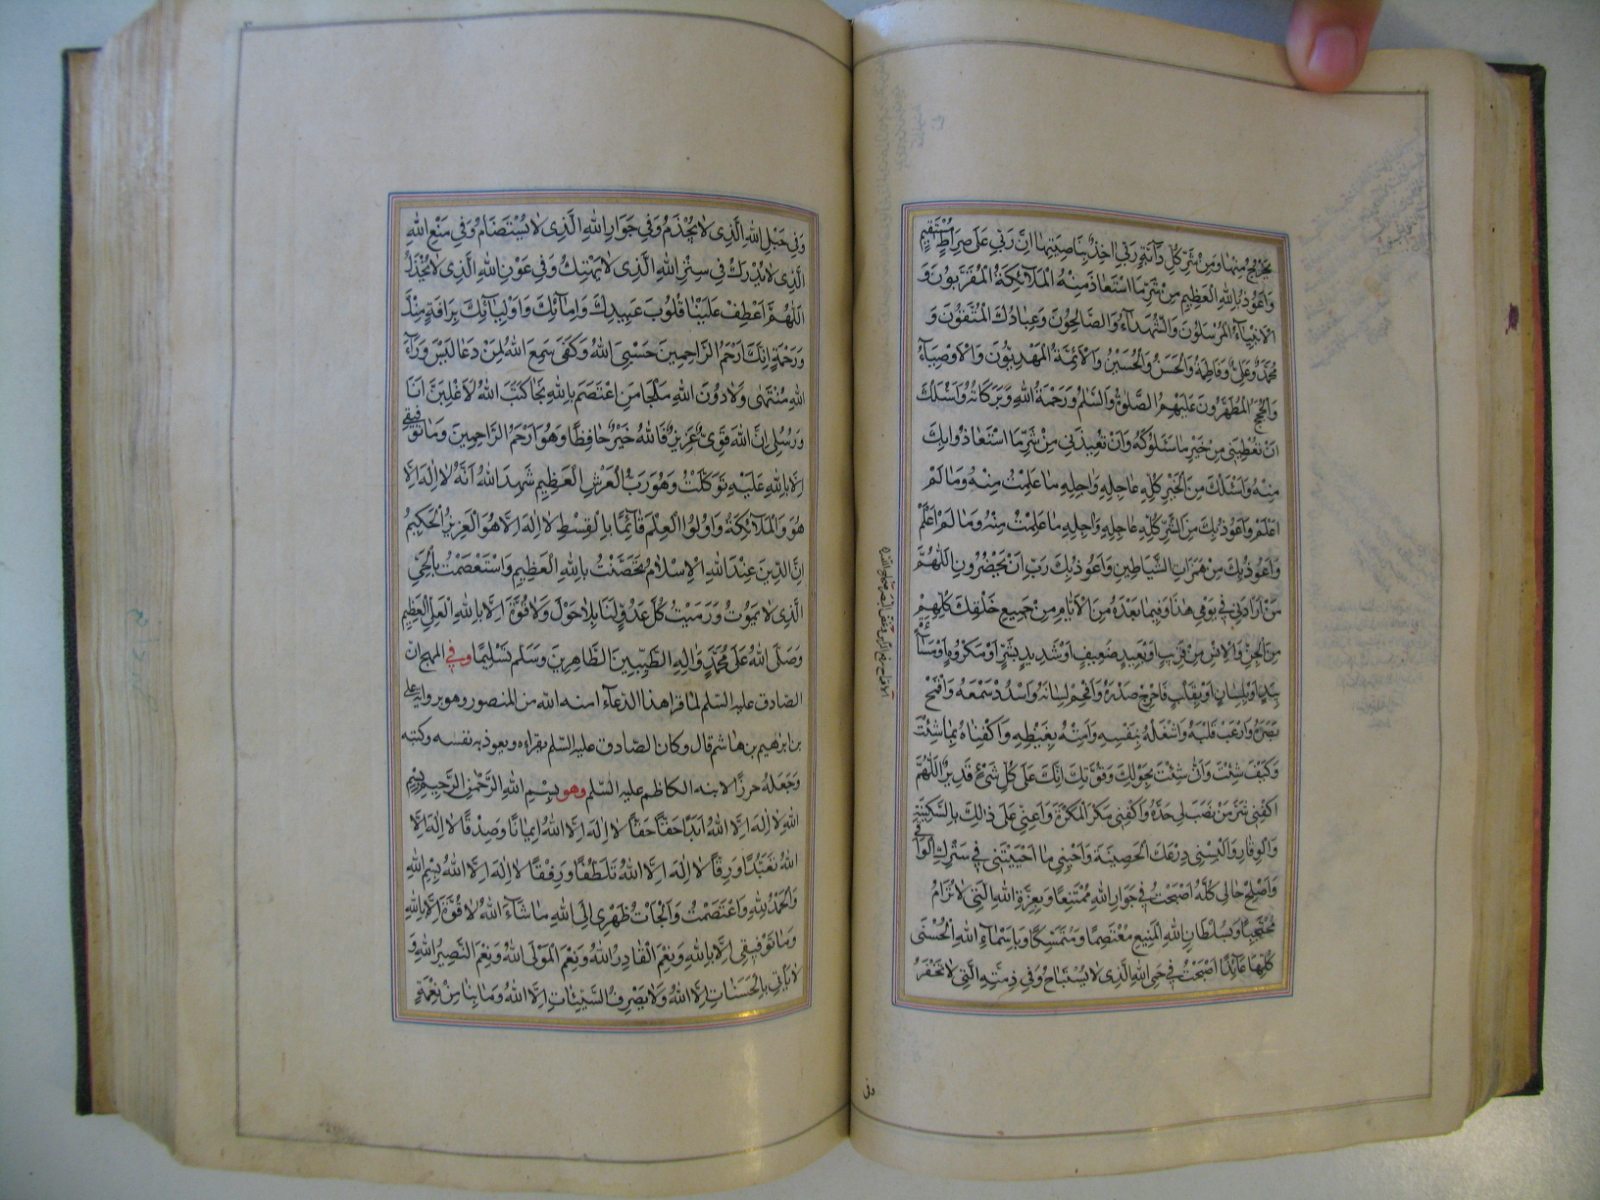 يخرج منها ومن شر كل دابة ربي اخذ بناصيتها ان ربي على صراط مستقيم
واعوذ بالله العظيم من شر ما استعاذ منه الملآئكة المقربون و
الانبيآء المرسلون والشهدآء والصالحون وعبادك المتقون و
محمد وعلي وفاطمة والحسن والحسين والائمة المهديون والاوصيآء
والحجج المطهرون عليهم الصلوة والسلم ورحمة الله وبركاته واسئلك
ان تعطيني من خير ما سئلوكه وان تعيذني من شر ما استعاذوا بك
منه واسئلك من الخير كله عاجله واجله ما علمت منه وما لم
اعلم واعوذ بك من الشر كله عاجله واجله ما علمت منه وما لم اعلم
واعوذ بك من همزات الشياطين واعوذ بك رب ان يحضرون اللهم
من ارادني في يومي هذا وفيما بعده من الايام من جميع خلقك كلهم
من الجن والانس من قريب او بعيد ضعيف او شديد بشر او مكروه او مسائة
بيد او بلسان او بقلب فاحرج صدره والجم لسانه واسدد سمعه واقمح
بصره وارعب قلبه واشغله بنفسه وامته بغيظه واكفناه بما شئت
وكيف شئت وانى شئت بحولك وقوتك انك على كل شئ قدير اللهم
اكفني شر من نصب لي حده واكفني مكر المكرة واعني على ذلك بالسكينة
والوقار والبسني درعك الحصينة واحيني ما احييتني في سترك الواقي
واصلح حالي كله اصبحت في جوار الله ممتنعا وبعزة الله التي لا ترام
محتجبا وبسلطان الله المنيع معتصما ومتمسكا وباسمآء الله الحسنى
كلها عائذا اصبحت في حمى الله الذي لا يستباح وفي ذمته التي لا تخفر
وفي
وفي حبل الله الذي لا يجذم وفي جوار الله الذي لا يستضام وفي منع الله
الذي لا يدرك وفي ستر الله الذي لا يهتك وفي عون الله الذي لا يخذل
اللهم اعطف علينا قلوب عبيدك وامآئك واوليآئك برافة منك
ورحمة انك ارحم الراحمين حسبي الله وكفى سمع الله لمن دعا ليس ورآء
الله منتهى ولا دون الله ملجا من اعتصم بالله نجا كتب الله لاغلبن انا
ورسلي ان الله قوي عزيز فالله خير حافظا وهو ارحم الراحمين وما توفيقي
الا بالله عليه توكلت وهو رب العرش العظيم شهد الله انه لا اله الا
هو والملآئكة واولوا العلم قآئما بالقسط لا اله الا هو العزيز الحكيم
ان الدين عند الله الاسلام تحصنت بالله العظيم واستعصمت بالحي
الذي لا يموت ورميت كل عدو لنا بلا حول ولا قوة الا بالله العلي العظيم
وصلى الله على محمد واله الطيبين الطاهرين وسلم تسليما وفي المهج ان
الصادق عليه السلم لما قرا هذا الدعآء امنه الله من المنصور وهو برواية علي
بن ابرهيم بن هاشم قال وكان الصادق عليه السلم يقراءه ويعوذ به نفسه وكتبه
وجعله حرزا لابنه الكاظم عليه السلم وهو بسم الله الرحمن الرحيم بسم
الله لا اله الا الله ابدا حقا حقا لا اله الا الله ايمانا وصدقا لا اله الا
الله تعبدا ورقا لا اله الا الله تلطفا ورفقا لا اله الا الله بسم الله
والحمد لله واعتصمت والجات ظهري الى الله ما شآء الله لا قوة الا بالله
وما توفيقي الا بالله ونعم القادر الله ونعم المولى الله ونعم النصير الله و
لا ياتي بالحسنات الا الله ولا يصرف السيئات الا الله وما بنا من نعمة